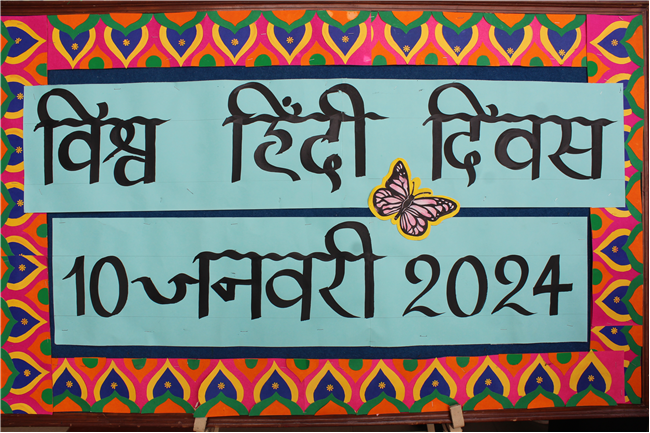 विश्व हिंदी दिवस
10 जनवरी 2024